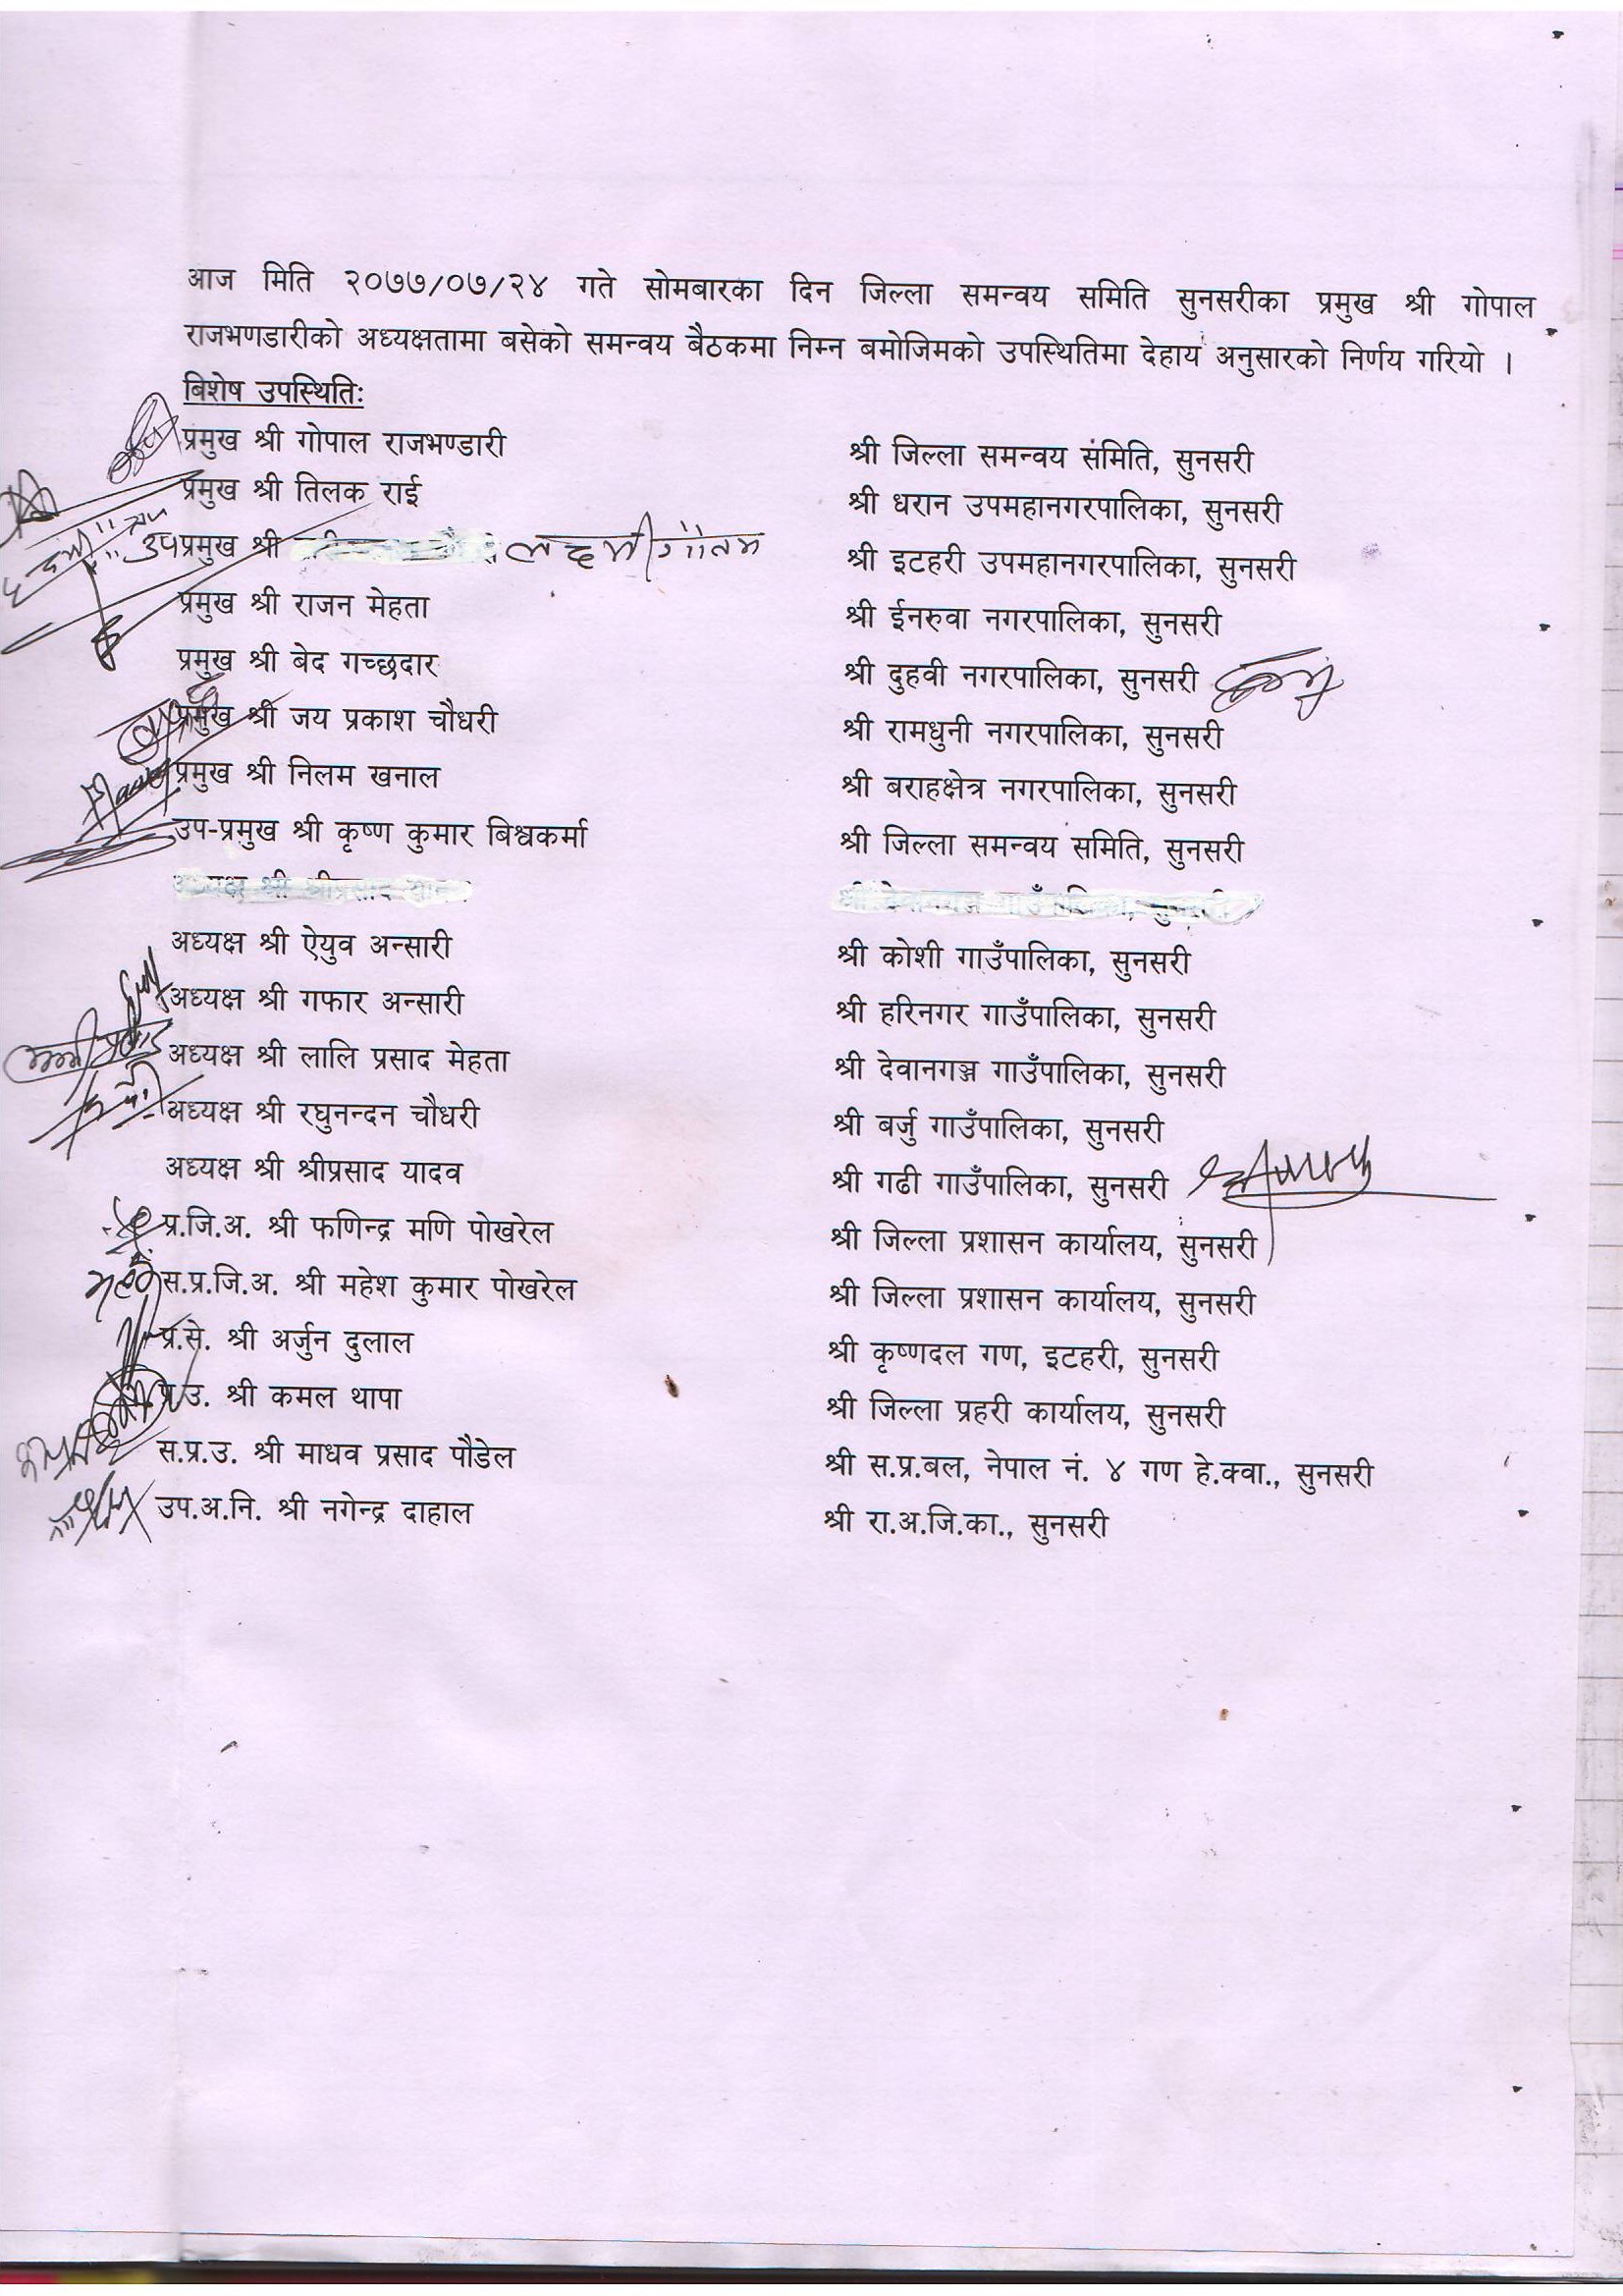 आज मिति २०७७/०७/२४ गते सोमबारका दिन जिल्ला समन्वय समिति सुनसरीका प्रमुख श्री गोपाल
राजभणडारीको अध्यक्षतामा बसेको समन्वय बैठकमा निम्न बमोजिमको उपस्थितिमा देहाय अनुसारको निर्णय गरियो ।
बिशेष उपस्थितिः
प्रमुख श्री गोपाल राजभण्डारी श्री जिल्ला समन्वय समिति, सुनसरी
प्रमुख श्री तिलक राई श्री धरान उपमहानगरपालिका, सुनसरी
उपप्रमुख श्री लक्ष्मी गौतम श्री इटहरी उपमहानगरपालिका, सुनसरी
प्रमुख श्री राजन मेहता श्री ईनरुवा नगरपालिका, सुनसरी
प्रमुख श्री बेद गच्छदार श्री दुहवी नगरपालिका, सुनसरी
प्रमुख श्री जय प्रकाश चौधरी श्री रामधुनी नगरपालिका, सुनसरी
प्रमुख श्री निलम खनाल श्री बराहक्षेत्र नगरपालिका, सुनसरी
उप-प्रमुख श्री कृष्ण कुमार बिश्वकर्मा श्री जिल्ला समन्वय समिति, सुनसरी
अध्यक्ष श्री ऐयुव अन्सारी श्री कोशी गाउँपालिका, सुनसरी
अध्यक्ष श्री गफार अन्सारी श्री हरिनगर गाउँपालिका, सुनसरी
अध्यक्ष श्री लालि प्रसाद मेहता श्री देवानगञ्ज गाउँपालिका, सुनसरी
अध्यक्ष श्री रघुनन्दन चौधरी श्री बर्जु गाउँपालिका, सुनसरी
अध्यक्ष श्री श्रीप्रसाद यादव श्री गढी गाउँपालिका, सुनसरी
प्र.जि.अ. श्री फणिन्द्र मणि पोखरेल श्री जिल्ला प्रशासन कार्यालय, सुनसरी
स.प्र.जि.अ. श्री महेश कुमार पोखरेल श्री जिल्ला प्रशासन कार्यालय, सुनसरी
प्र.से. श्री अर्जुन दुलाल श्री कृष्णदल गण, इटहरी, सुनसरी
प्र.उ. श्री कमल थापा श्री जिल्ला प्रहरी कार्यालय, सुनसरी
स.प्र.उ. श्री माधव प्रसाद पौडेल श्री स.प्र.बल, नेपाल नं. ४ गण हे.क्वा., सुनसरी
उप.अ.नि. श्री नगेन्द्र दाहाल श्री रा.अ.जि.का., सुनसरी